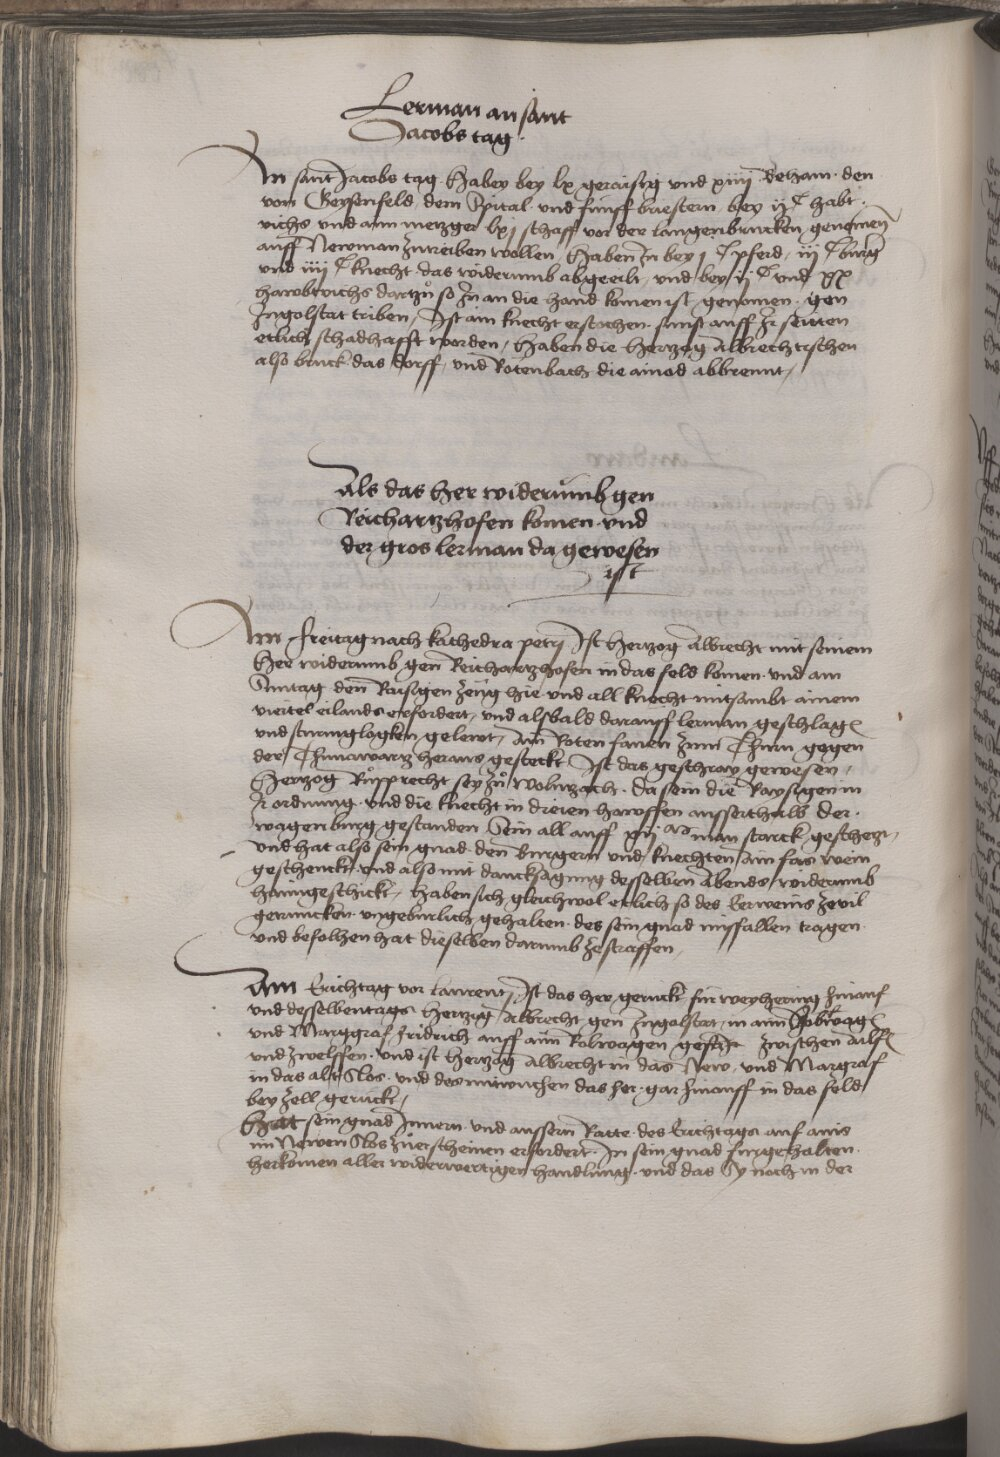 Lerman an sant
Jacobs tag
An sant Jacobs tag Haben bey lx geraisig vnd xiiij Beham den
von Geysenfeld dem Spital vnd funff baestern bey ij c habt
vichs vnd ainn metzger lxj schaff vor der langenbrucken genomen
auff Newman zutreiben wollen Haben In bey j c pferd iij c burg
vnd iiij c knecht das widerumb abgeeilt vnd bey ij c vnd xx
hawbtvichs dartzů so In an die hand komen ist genomen gen
Ingolstat triben Ist ain knecht erstochen sunst auff Ir seitten
etlich schadhafft worden Haben die hertzog Albrechtischen
also bruck das dorff vnd Rotenbach die ainod abbrennt
Als das Her widerumb gen
Reichartzhofen komen vnd
der gros lerman da gewesen
ist
Am freitag nach kathedra petrj Ist Hertzog Albrecht mit seinem
Her widerumb gen Reichartzhofen in das feld komen vnd am
Suntag den Raisigen zeug hie vnd all knecht mitsambt ainem
viertel eilands erfordert vnd alsbald darauff lerman geschlagen
vnd sturmglogken gelewt Ain Roten fanen zum Thurn gegen
der Thunawartz heraus gesteckt Ist das geschray gewesen
Hertzog Růpprecht sey zů wolnzach da sein die Raysigen in
Ir ordnung vnd die knecht in dreien hawffen ausserthalb der
wagenburg gestanden Sein all auff man starck geschetzt
vnd hat also sein gnad den Burgern vnd knechten ain fas wein
geschenckt vnd also mit dancksagung desselben Abends widerumb
haimgeschickt Haben sich gleichwol etlich so des Eerweins zevil
getruncken vngeburlich gehalten des sein gnad misfallen tragen
vnd befolhen hat dieselben darumb zestraffen
Am Erichtag vor laurentj Ist das her geruckt fur weyhering hinauf
vnd desselbentags Hertzog Albrecht gen Ingolstat in aim
vnd Marggraf fridrich auff aim kolwagen gefarn zwischen ailff
vnd zwelffen vnd ist Hertzog Albrecht in das New vnd Margraf
in das alt Slos vnd des mitwuchen das her gar hinauff in das feld
bey zell geruckt
Hatt sein gnad Innern vnd aussern Ratte des Erichtags auf ains
im Newen Slos zu erscheinen erfordert In sein gnad furgehalten
herkomen aller widerwertigen handlung vnd das Sy noch in der